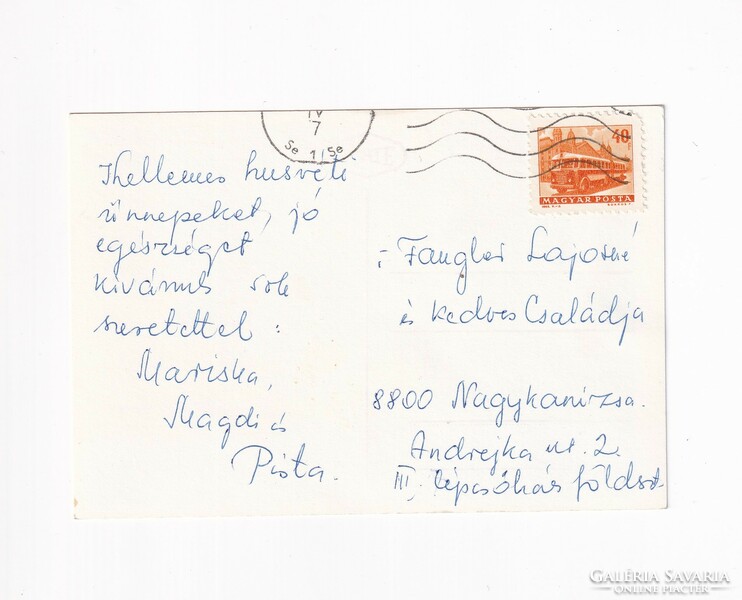 IV
7
Se 1/Se
40
MAGYAR POSTA
Khellemes husvéti
ünnepeket, jó
egészséget
kivánnk sok
szeretettel:
Mariska,
Magdi és
Pista.
Fangler Lajosné
és kedves Családja
8800 Nagykanizsa.
Andrejka u. 2.
III. lépcsőház földszt.
GALÉRIA SAVARIA
ONLINE PIACTÉR